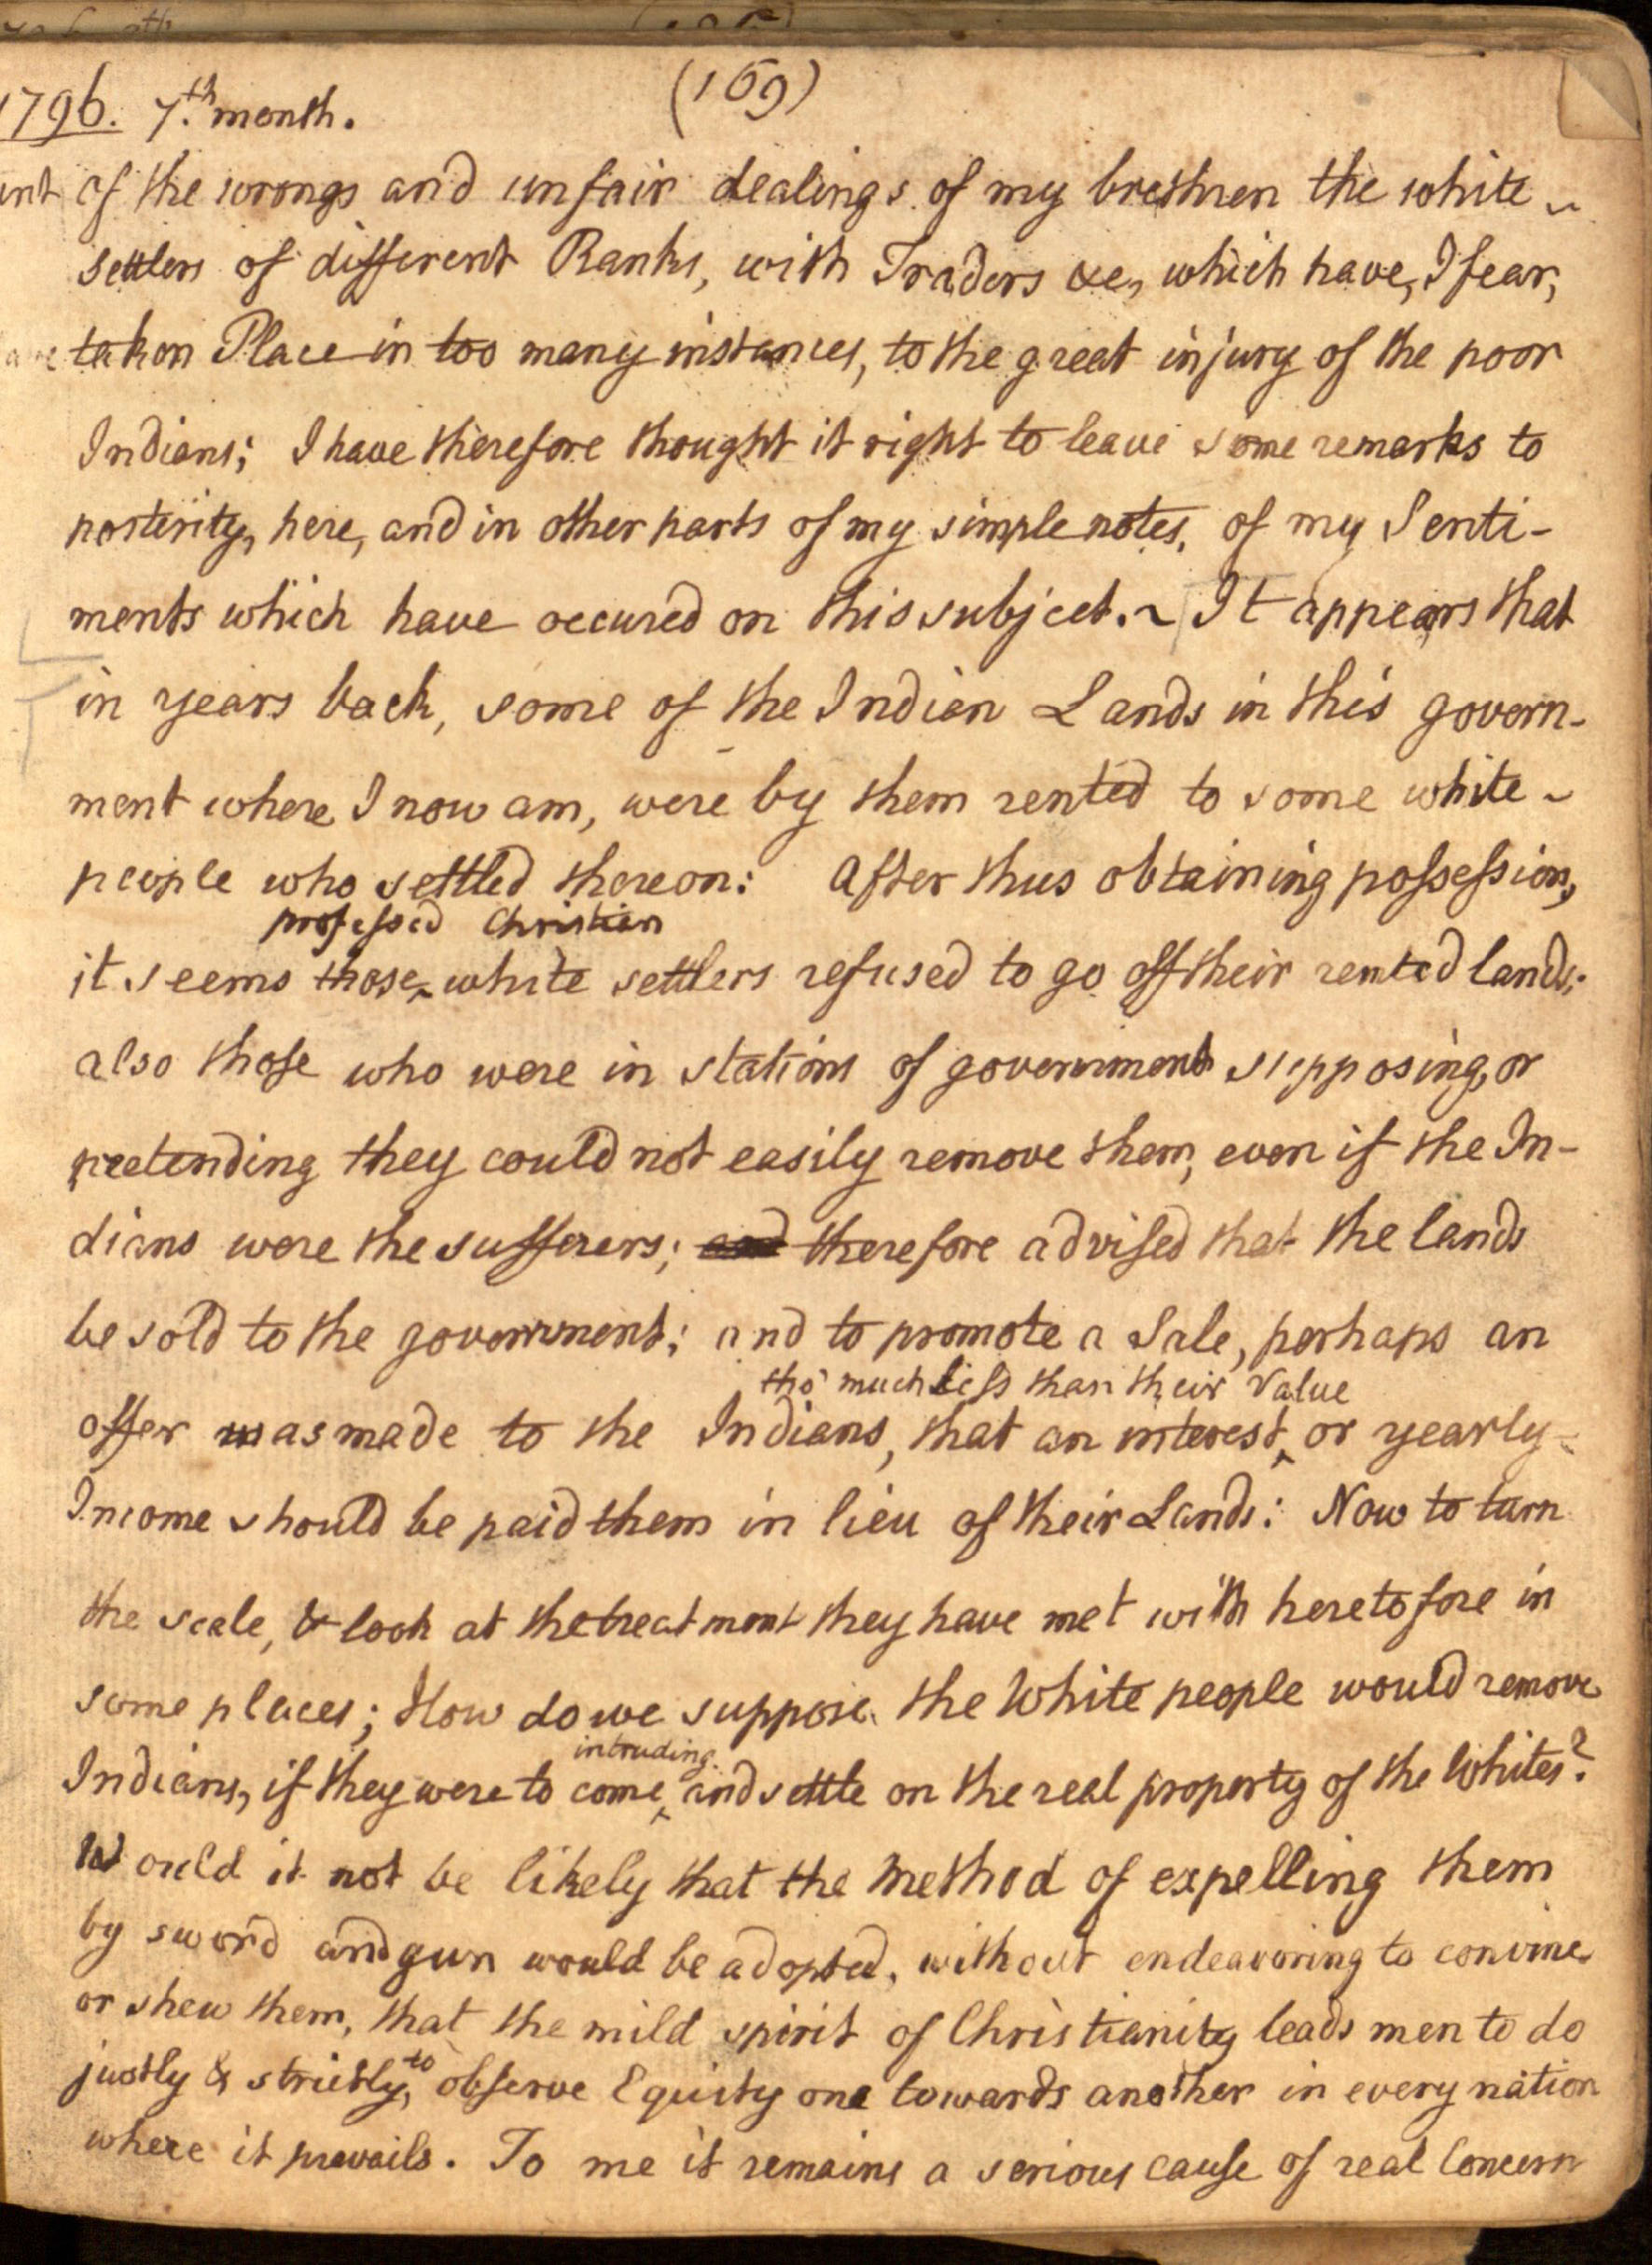 1796. 7th. month. (169)
of the wrongs and unfair dealings of my brethren the white ~
settlers of different Ranks, with Traders &c, which have, I fear,
taken Place in too many instances, to the great injury of the poor
Indians; I have therefore thought it right to leave some remarks to
posterity, here, and in other parts of my simple notes, of my Senti-
ments which have occured on this subject. ~ It appears that
in years back, some of the Indian Lands in this govern-
ment where I now am, were by them rented to some white ~
people who settled thereon: After thus obtaining possession,
professed Christian
it seems those ^ white settlers refused to go off their rented lands;
also those who were in stations of government supposing, or
pretending they could not easily remove them, even if the In-
dians were the sufferers; and therefore advised that the lands
be sold to the government; and to promote a Sale, perhaps an
tho' much less than their Value
offer was made to the Indians, that an interest ^ or yearly
Income should be paid them in lieu of their Lands: Now to turn
the scale, & look at the treatment they have met with heretofore in
some places; How do we suppose the White people would remove
intruding
Indians, if they were to come ^ and settle on the real property of the Whites?
Would it not be likely that the Method of expelling them
by sword and gun would be adopted, without endeavoring to convince
or shew them, that the mild spirit of Christianity leads men to do
to
justly & strictly, observe Equity one towards another in every nation
where it prevails. To me it remains a serious cause of real Concern